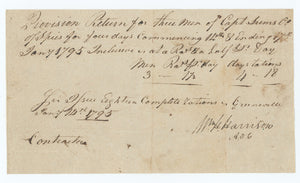 Provision Return for three Men of Capt. Co
of Spies for four days Commencing 14th & Ending 17th
Jany 1795 Inclusive at a Ration & a half Pr. Day
Men Ras. Pr. Day days Rations
3 — 1½ 4 — 18
Sir Issue Eighteen Complete Rations
Jany 14th 1795
Contractor
Wm H Harrison
ADC